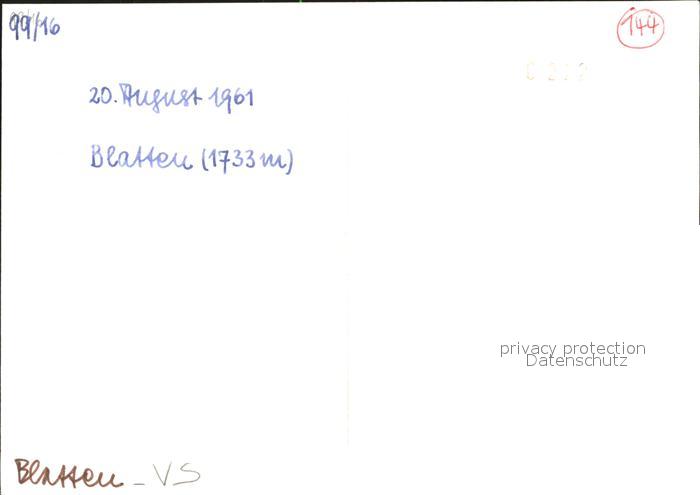 99/16
144
20. August 1961
Blatten (1733m)
privacy protection
Datenschutz
Blatten - VS